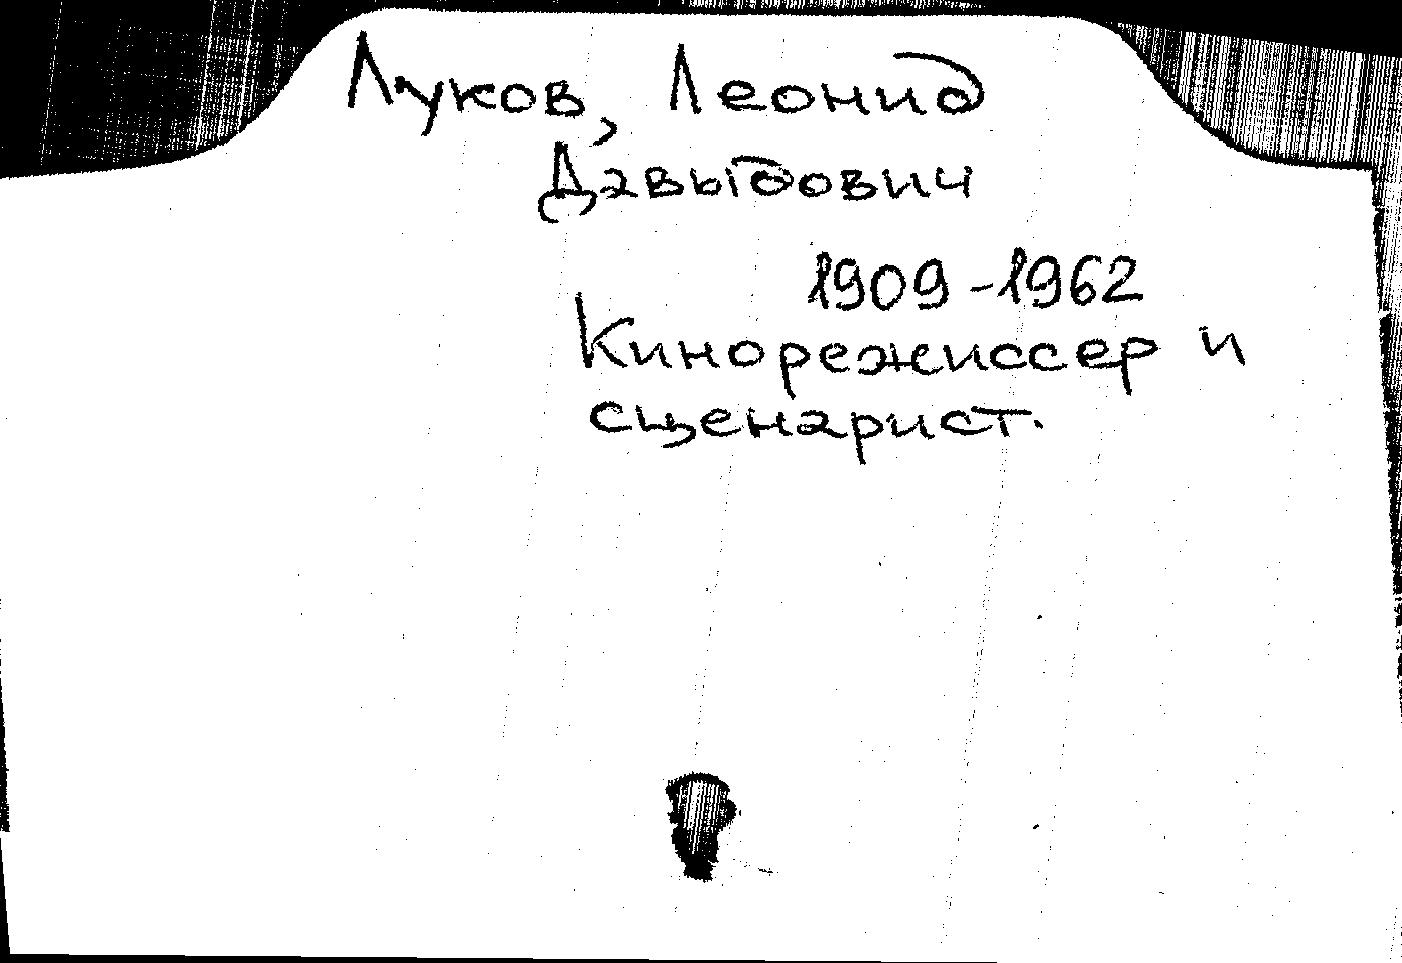 Луков, Леонид
Давыдович
1909-1962
Кинорежиссер и
сценарист.